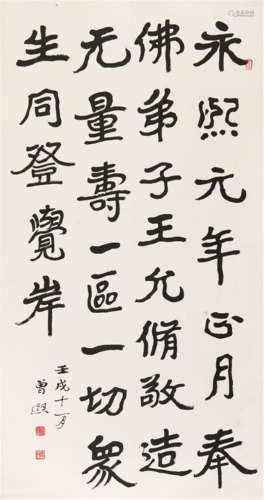 永熙元年正月奉
佛弟子王允脩敬造
无量壽一區一切眾
生同登覺岸
壬戌十一月
曾熙